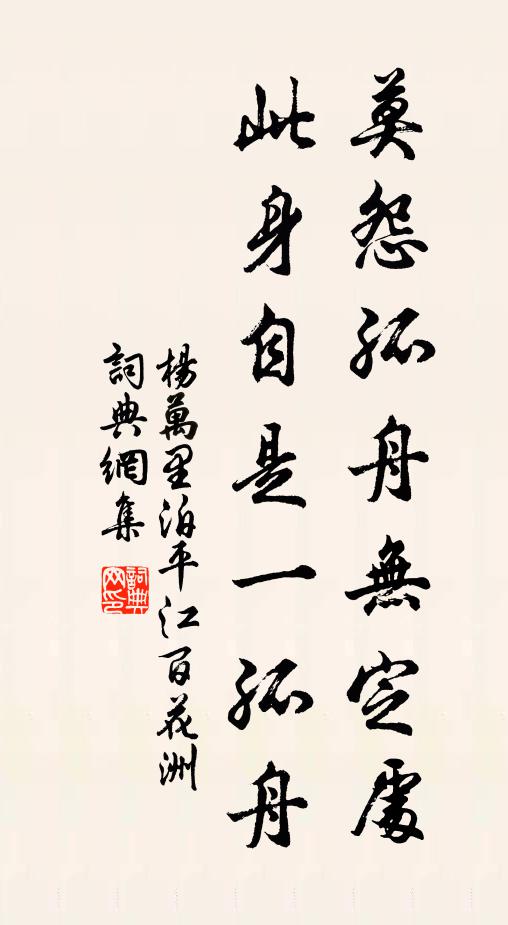 莫怨孤舟無定處
此身自是一孤舟
楊萬里泊平江百花洲
詞典網集
詞典網印